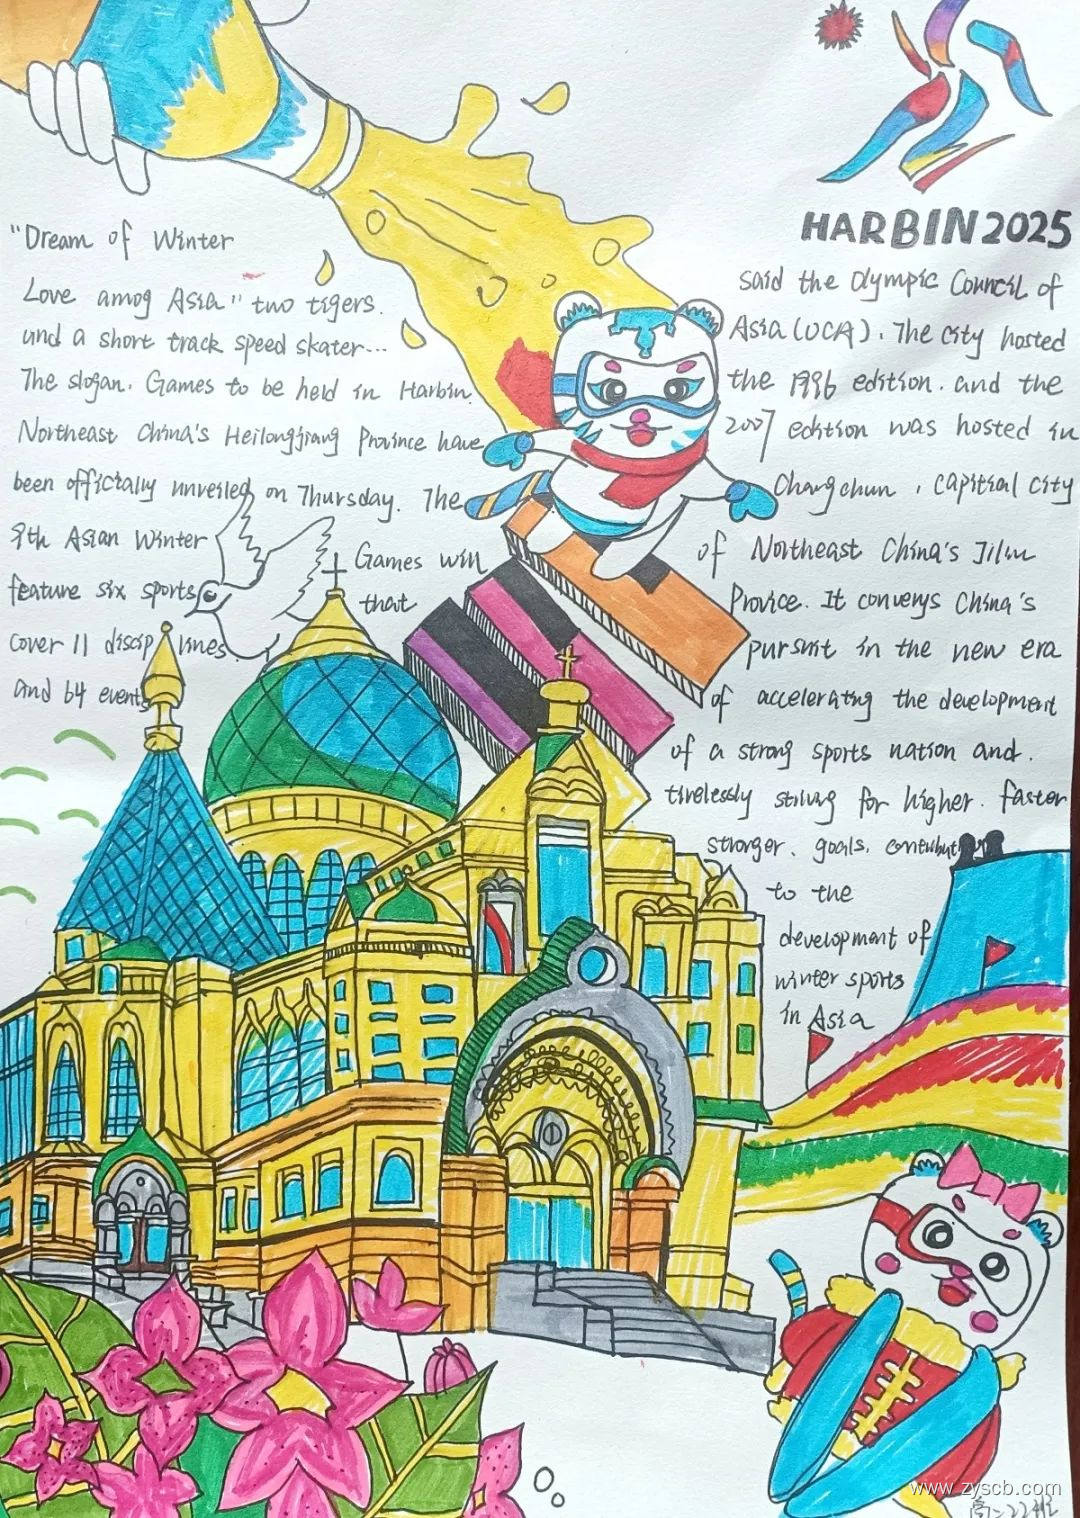 "Dream of Winter
Love amog Asia" two tigers.
and a short track speed skater...
The slogan. Games to be held in Harbin.
Northeast China's Heilongjiang Province have
been officially unveiled on Thursday. The
9th Asian Winter Games win
feature six sports that
cover 11 disciplines
and 64 events
HARBIN2025
said the Olympic Council of
Asia (OCA). The city hosted
the 1996 edition. and the
2007 edition was hosted in
Changchun, capitial city
of Northeast China's Jilin
Provice. It conveys China's
pursuit in the new era
of accelerating the development
of a strong sports nation and.
tirelessly striving for higher. faster
stronger. goals. contribut
to the
development of
winter sports
in Asia
www.zyscb.com
高二22班